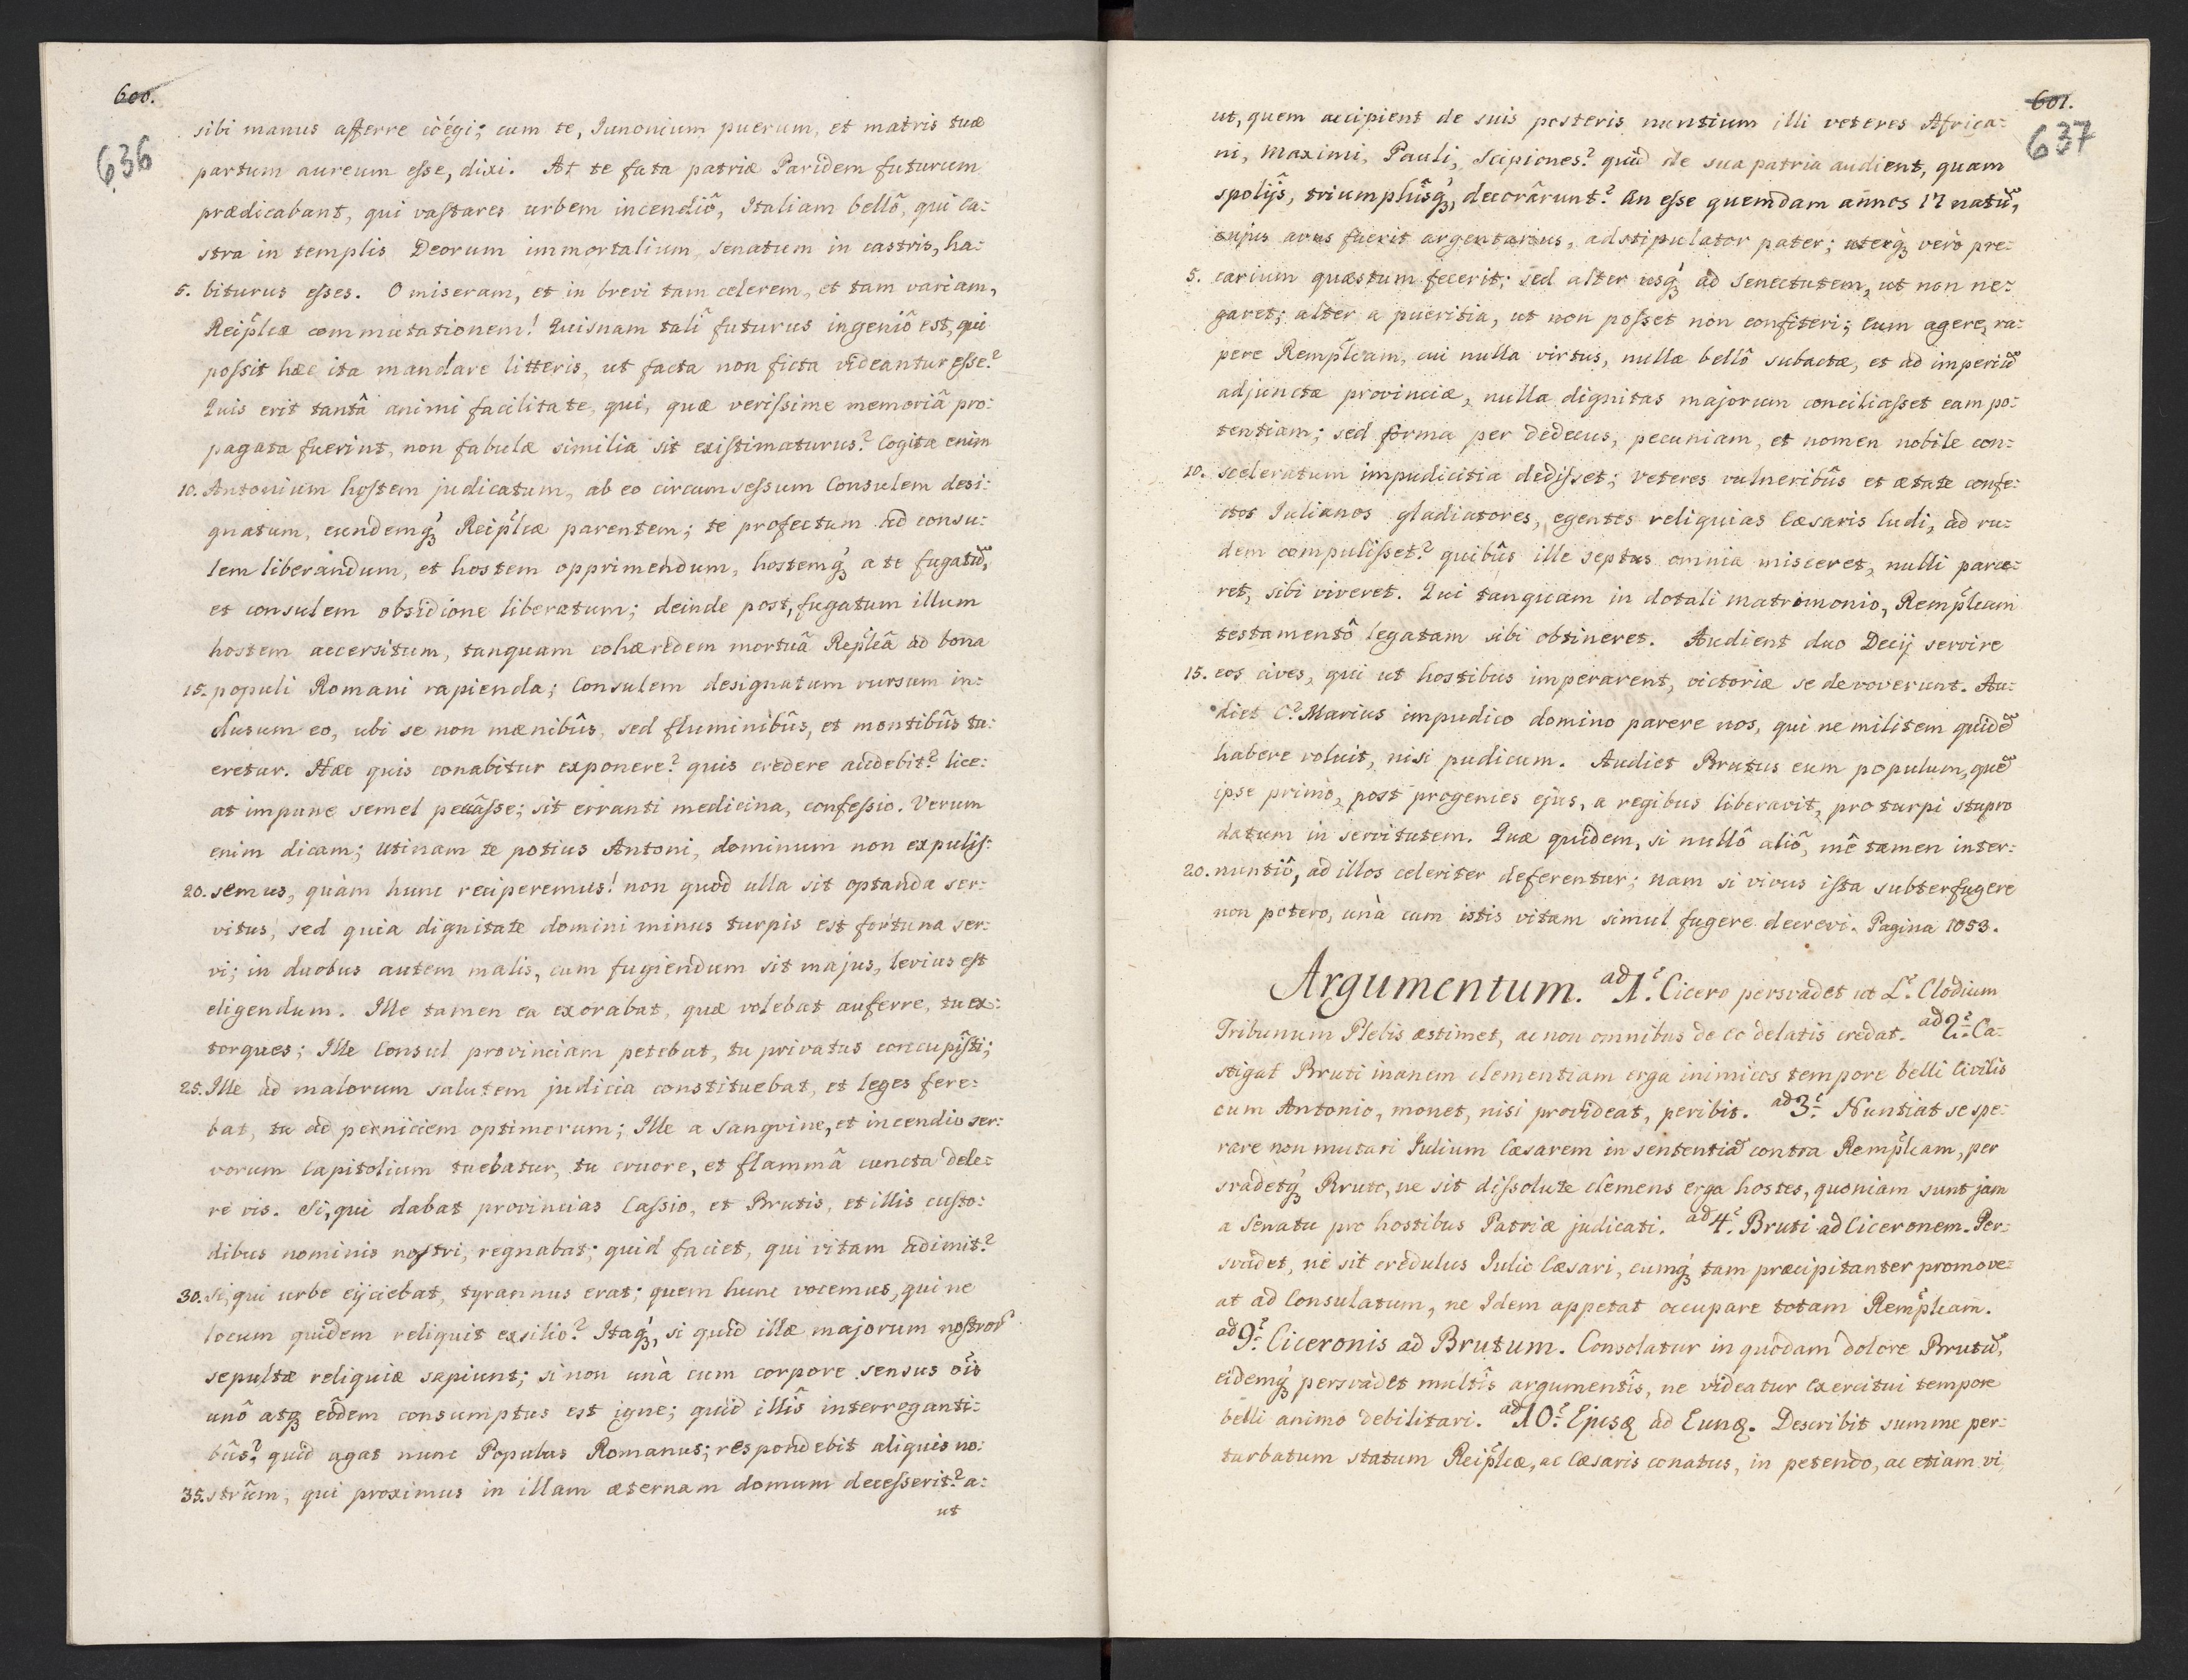 600.
636
sibi manus afferre coégi; cum te, Iunonium puerum, et matris tuæ
partum aureum esse, dixi. At te fata patriæ Paridem futurum
prædicabant, qui vastares urbem incendiô, Italiam bellô, qui Ca:
stra in templis Deorum immortalium, senatum in castris, ha:
5. biturus esses. O miseram, et in brevi tam celerem, et tam variam,
Reipl̃cæ commutationem! Quisnam talî futurus ingeniô est, qui
possit hæc ita mandare litteris, ut facta non ficta videantur esse?
Quis erit tantâ animi facilitate, qui, quæ verissime memoriâ pro:
pagata fuerint, non fabulæ similia sit existimaturus? Cogita enim
10. Antonium hostem judicatum, ab eo circumsessum Consulem desi:
gnatum, eundemq́ꝫ Reipl̃cæ parentem; te profectum ad consu:
lem liberandum, et hostem opprimendum, hostemq́ꝫ a te fugatũ,
et consulem obsidione liberatum; deinde post, fugatum illum
hostem accersitum, tanquam cohæredem mortuâ Repl̃câ ad bona
15. populi Romani rapienda; Consulem designatum rursum in:
clusum eo, ubi se non mænibûs, sed fluminibûs, et montibûs tu:
eretur. Hæc quis conabitur exponere? quis credere audebit? lice:
at impune semel peccâsse; sit erranti medicina, confessio. Verum
enim dicam; utinam te potius Antoni, dominum non expulis:
20. semus, quàm hunc reciperemus! non quòd ulla sit optanda ser:
vitus, sed quia dignitate domini minus turpis est fortuna ser:
vi; in duobus autem malis, cum fugiendum sit majus, levius est
eligendum. Ille tamen ea exorabat, quæ volebat auferre, tu ex:
torques; Ille Consul provinciam petebat, tu privatus concupîsti;
25. Ille ad malorum salutem judicia constituebat, et leges fere:
bat, tu ad perniciem optimorum; Ille a sangvine, et incendio ser:
vorum Capitolium tuebatur, tu cruore, et flammâ cuncta dele:
re vis. Si, qui dabat provincias Cassio, et Brutis, et illis custo:
dibus nominis nostri, regnabat; quid faciet, qui vitam adimit?
30. Si, qui urbe eijciebat, tyrannus erat; quem hunc vocemus, qui ne
locum quidem reliquit exsilio? Itaq́ꝫ, si quid illæ majorum nostror̃
sepultæ reliquiæ sapiunt; si non unà cum corpore sensus oĩs
unô atqꝫ eôdem consumptus est igne; quid illîs interroganti:
bûs? quid agat nunc Populus Romanus; respondebit aliquis no:
35. strûm, qui proximus in illam æternam domum decesserit? a:
ut
601.
637
ut, quem accipient de suis posteris nuntium illi veteres Africa:
ni, Maximi, Pauli, Scipiones? quid de sua patria audient, quam
spolijs, triumphîsq́ꝫ, decorârunt? An esse quemdam annos 17 natũ,
cujus avus fuerit argentarius, adstipulator pater; uterq́ꝫ verò pre:
5. carium quæstum fecerit; sed alter usq́ꝫ ad senectutem, ut non ne:
garet; alter a pueritia, ut non posset non confiteri; eum agere, ra:
pere Rempl̃cam, cui nulla virtus, nullæ bellô subactæ, et ad imperiũ
adjunctæ provinciæ, nulla dignitas majorum conciliasset eam po:
tentiam; sed forma per dedecus, pecuniam, et nomen nobile con:
10. sceleratum impudicitia dedisset; Veteres vulneribûs et ætate confe:
ctos Iulianos gladiatores, egentes reliquias Cæsaris ludi, ad ru:
dem compulisset? quibûs ille septus omnia misceret, nulli parce:
ret, sibi viveret. Qui tanquam in dotali matrimonio, Rempl̃cam
testamentô legatam sibi obtineret. Audient duo Decij servire
15. eos cives, qui ut hostibus imperarent, victoriæ se devoverunt. Au:
diet C? Marius impudico domino parere nos, qui ne militem quidẽ
habere voluit, nisi pudicum. Audiet Brutus eum populum, quẽ
ipse primò, post progenies ejus, a regibus liberavit, pro turpi stupro
datum in servitutem. Quæ quidem, si nullô aliô, mê tamen inter:
20. nuntiô, ad illos celeriter deferentur; nam si vivus ista subterfugere
non potero, unà cum istis vitam simul fugere decrevi. Pagina 1053.
Argumentum. ad 1? Cicero persvadet ut L? Clodium
Tribunum Plebis æstimet, ac non omnibus de eo delatis credat. ad 2? Ca:
stigat Bruti inanem clementiam erga inimicos tempore belli Civilis
cum Antonio, monet, nisi provideat, peribit. ad 3? Nuntiat se spe:
rare non mutari Iulium Cæsarem in sententiâ contra Rempl̃cam, per
svadetq́ꝫ Bruto, ne sit dissolute clemens erga hostes, quoniam sunt jam
a Senatu pro hostibus Patriæ judicati. ad 4? Bruti ad Ciceronem. Per:
svadet, ne sit credulus Iulio Cæsari, eumq́ꝫ tam præcipitanter promove:
at ad Consulatum, ne Idem appetat occupare totam Rempl̃cam.
ad 9? Ciceronis ad Brutum. Consolatur in quodam dolore Brutũ,
eidemq́ꝫ persvadet multîs argumentîs, ne videatur Exercitui tempore
belli animo debilitari. ad 10? Ejusꝗ ad Eunꝗ. Describit summe per:
turbatum statum Reipl̃cæ, ac Cæsaris conatus, in petendo, ac etiam vi